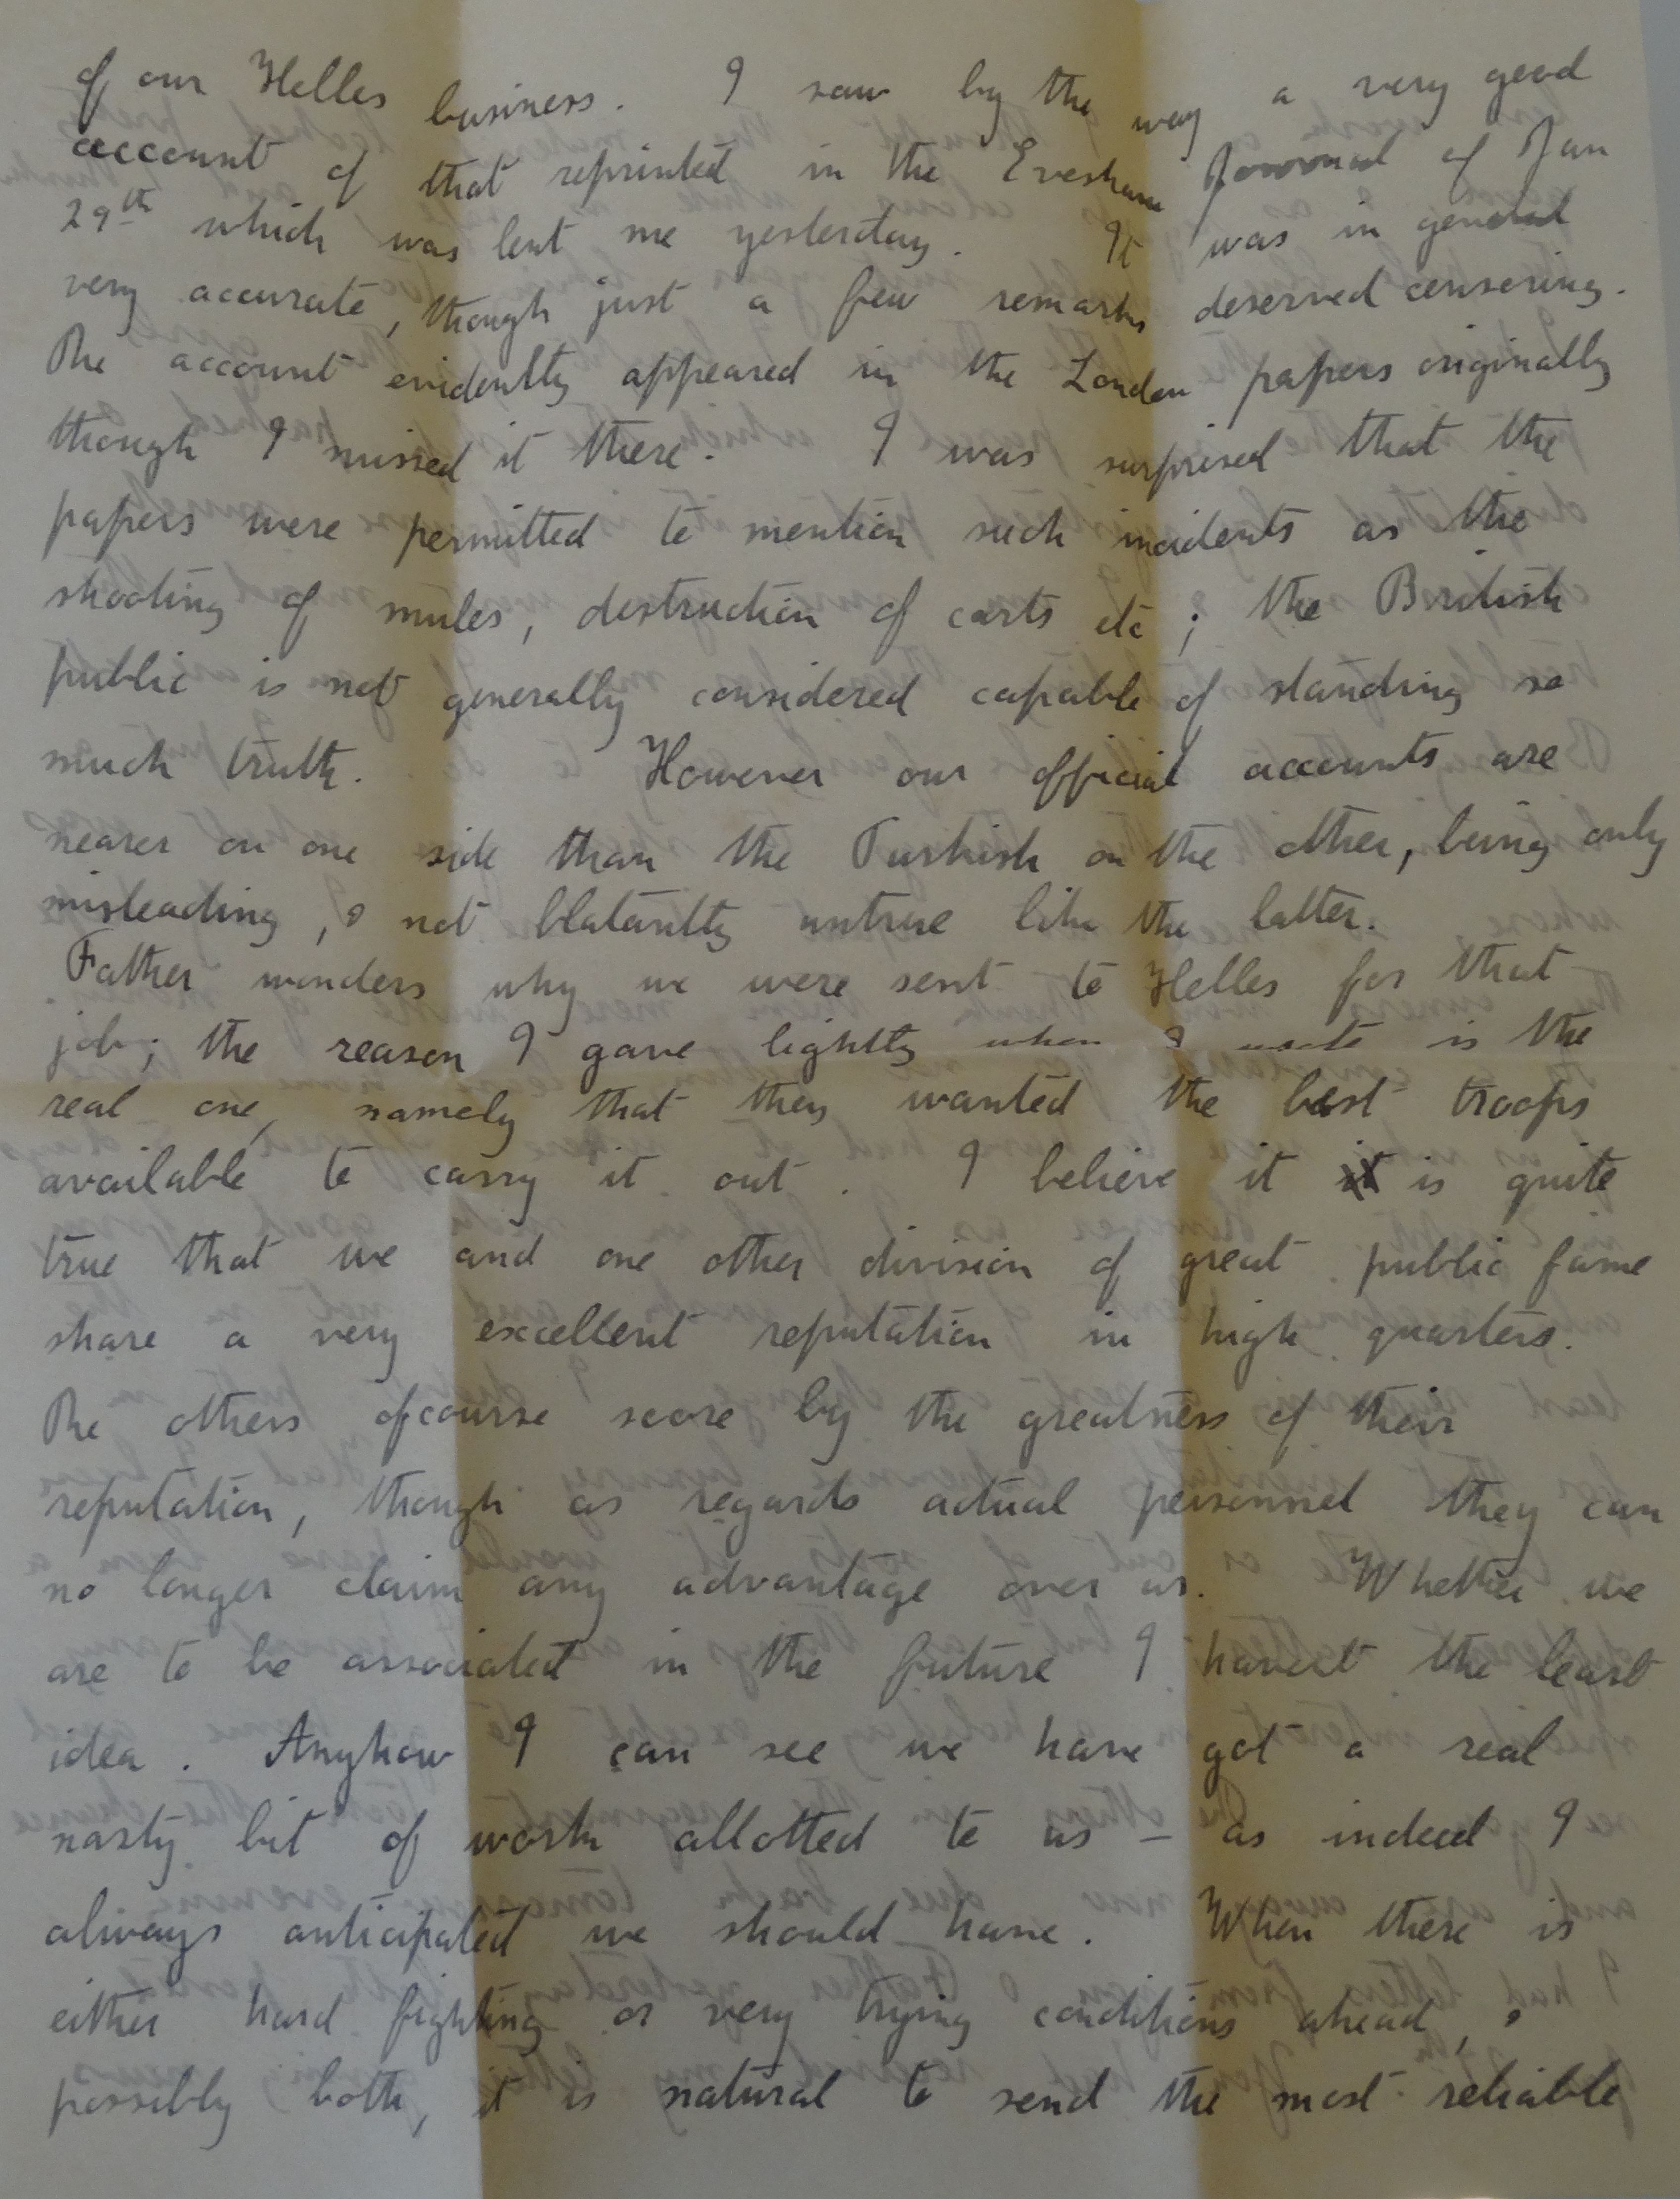 of our Helles business. I saw by the way a very good
account of that reprinted in the Evesham Journal of Jan
29th which was lent me yesterday. It was in general
very accurate, though just a few remarks deserved censering.
The account evidently appeared in the London papers originally
though I missed it there. I was surprised that the
papers were permitted to mention such incidents as the
shooting of mules, destruction of carts etc; the British
public is not generally considered capable of standing so
much truth. However our official accounts are
nearer on one side than the Turkish on the other, being only
misleading, & not blatantly untrue like the latter.
Father wonders why we were sent to Helles for that
job; the reason I gave lightly when I wrote is the
real one, namely that they wanted the best troops
available to carry it out. I believe it is quite
true that we and one other division of great public fame
share a very excellent reputation in high quarters.
The others ofcourse score by the greatness of their
reputation, though as regards actual personnel they can
no longer claim any advantage over us. Whether we
are to be associated in the future I havent the least
idea. Anyhow I can see we have got a real
nasty bit of work allotted to us – as indeed I
always anticipated we should have. When there is
either hard fighting or very trying conditions ahead, &
possibly both, it is natural to send the most reliable